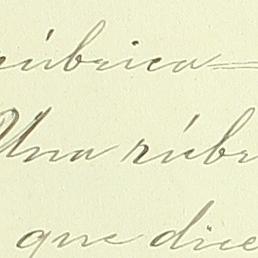 rúbrica=
Una rúbr
que dice